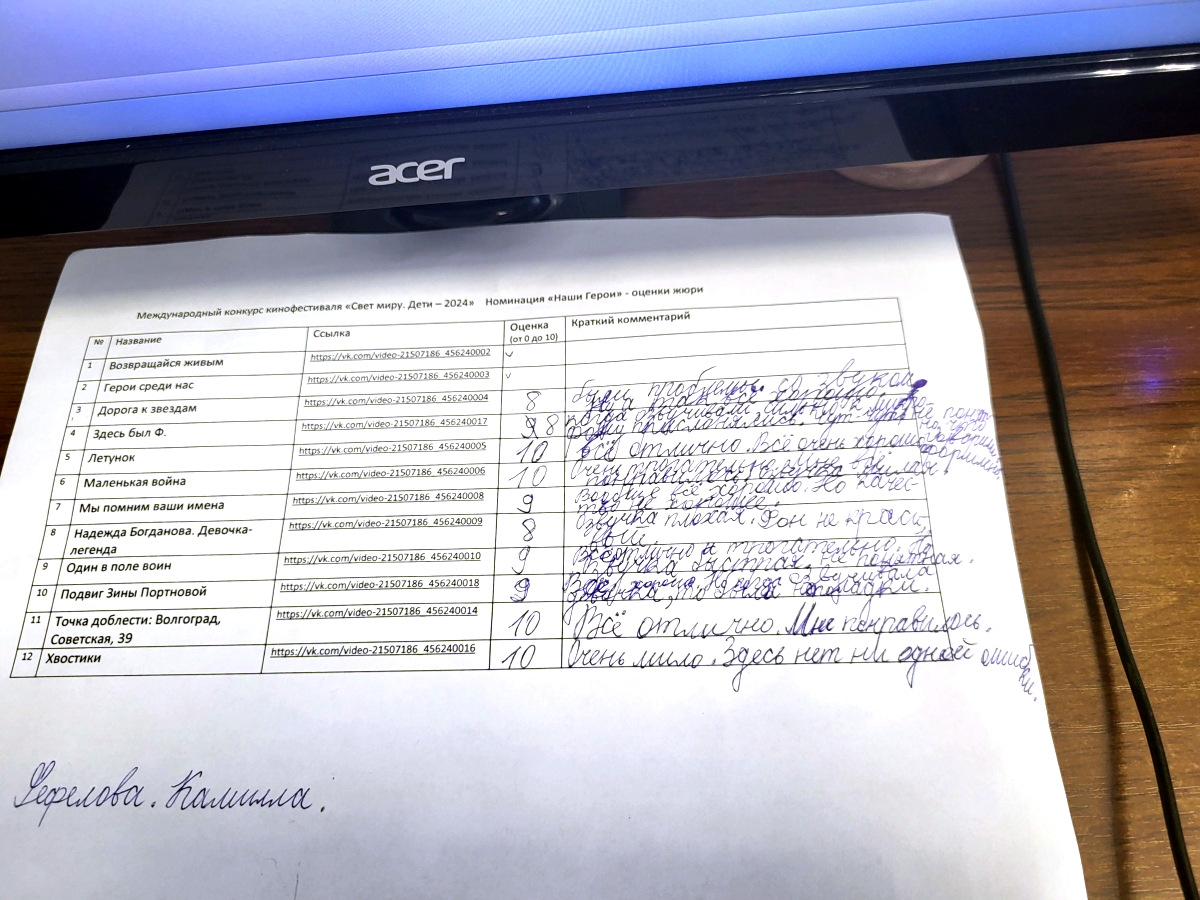 acer
Международный конкурс кинофестиваля «Свет миру. Дети – 2024» Номинация «Наши Герои» - оценки жюри
№ Название Ссылка Оценка (от 0 до 10) Краткий комментарий
1 Возвращайся живым https://vk.com/video-21507186_456240002 ✓
2 Герои среди нас https://vk.com/video-21507186_456240003 ✓
3 Дорога к звездам https://vk.com/video-21507186_456240004 8 были проблемы со звуком,
а так всё хорошо.
4 Здесь был Ф. https://vk.com/video-21507186_456240017 8 когда озвучивали,
не
5 Летунок https://vk.com/video-21507186_456240005 10 Всё отлично. Всё очень хорошо
6 Маленькая война https://vk.com/video-21507186_456240006 10 Очень трогательно.
понравилось.
7 Мы помним ваши имена https://vk.com/video-21507186_456240008 9 Вообще всё хорошо. Но качес-
тво не хорошее.
8 Надежда Богданова. Девочка-легенда https://vk.com/video-21507186_456240009 8 Озвучка плохая. Фон не краси-
вый.
9 Один в поле воин https://vk.com/video-21507186_456240010 9 Всё отлично и трогательно. Но
озвучка быстрая, не понятная.
10 Подвиг Зины Портновой https://vk.com/video-21507186_456240018 9 Всё хорошо. Но когда озвучивала
11 Точка доблести: Волгоград, Советская, 39 https://vk.com/video-21507186_456240014 10 Всё отлично. Мне понравилось.
12 Хвостики https://vk.com/video-21507186_456240016 10 Очень мило. Здесь нет ни одной ошибки.
Камилла.